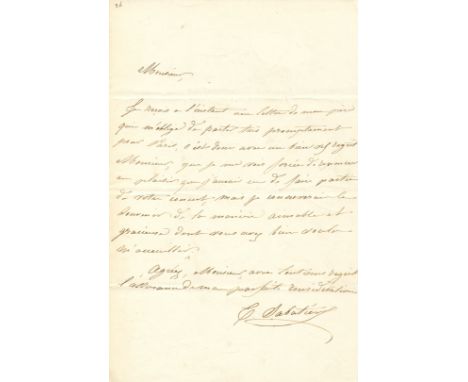 Monsieur,
Je reçois à l'instant une lettre de mon père
qui m'oblige de partir très promptement
pour Paris, c'est donc avec un bien vif regret
Monsieur, que je me vois forcée de renoncer
au plaisir que j'aurais eu de faire partie
de votre concert, mais je conserverai le
souvenir de la manière aimable et
gracieuse dont vous avez bien voulu
m'accueillir.
Agréez, Monsieur, avec tous mes regrets
l'assurance de ma parfaite considération
Sabatier